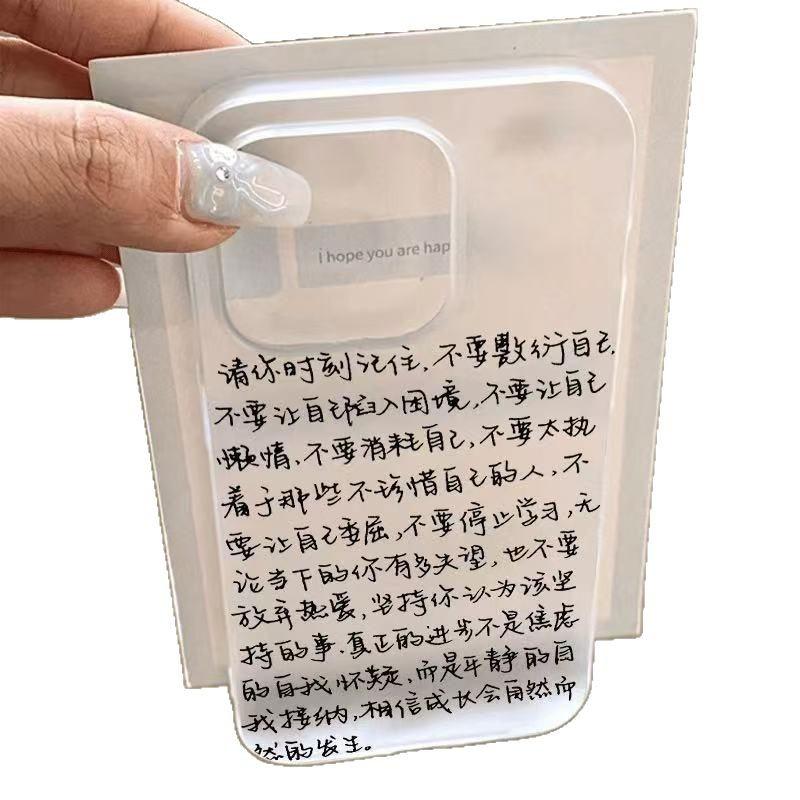 i hope you are hap
请你时刻记住,不要敷衍自己,
不要让自己陷入困境,不要让自己
懒惰,不要消耗自己,不要太执
着于那些不珍惜自己的人,不
要让自己委屈,不要停止学习,无
论当下的你有多失望,也不要
放弃热爱,坚持你认为该坚
持的事,真正的进步不是焦虑
的自我怀疑,而是平静的自
我接纳,相信成长会自然而
然的发生。